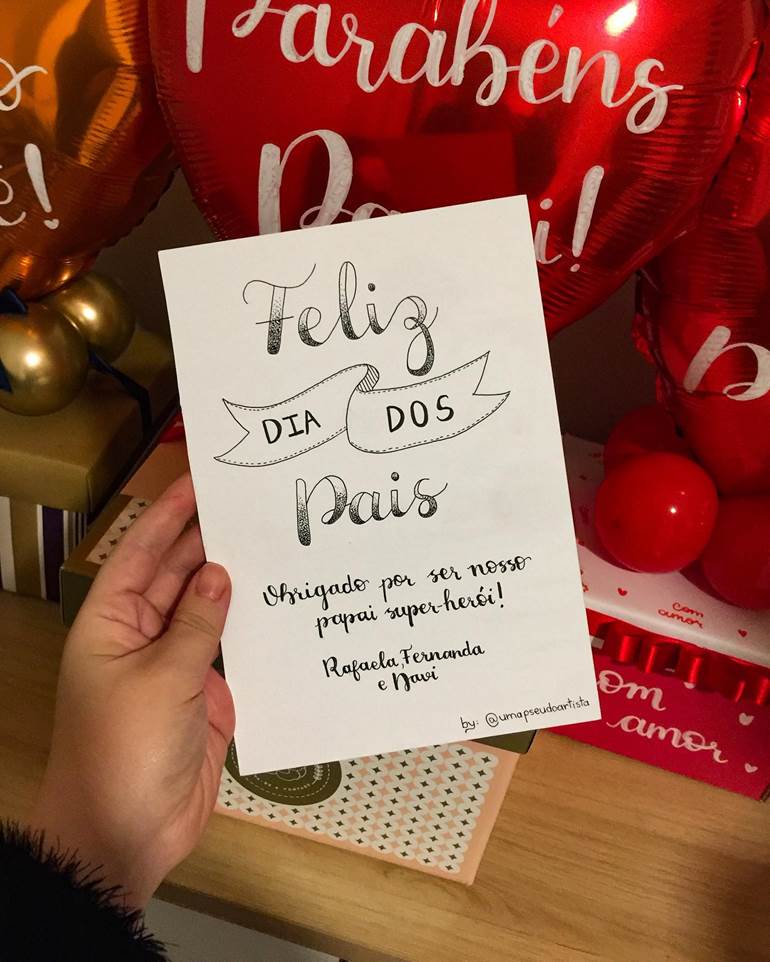 Parabéns
Pai!
é!
Feliz
DIA DOS
Pais
Obrigado por ser nosso
papai super-herói!
Rafaela, Fernanda
e Davi
by: @umapseudoartista
com
amor
com
amor